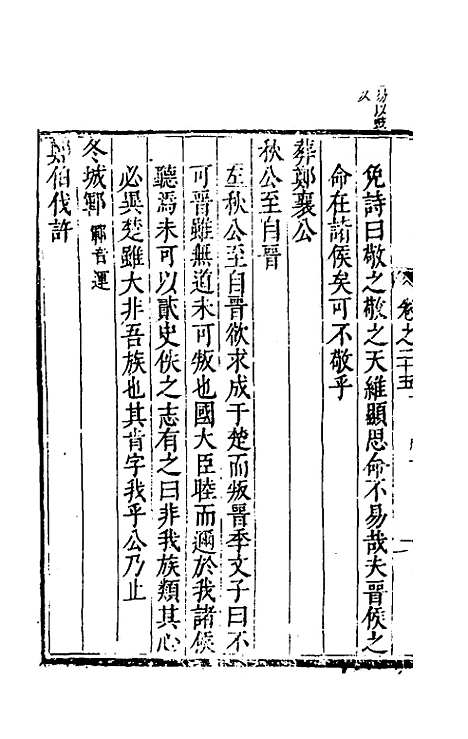 易以豉
卷之二十五
免詩曰敬之敬之天維顯思命不易哉夫晉侯之
命在諸侯矣可不敬乎
葬鄭襄公
秋公至自晉
至秋公至自晉欲求成于楚而叛晉季文子曰不
可晉雖無道未可叛也國大臣睦而邇於我諸侯
聽焉未可以貳史佚之志有之曰非我族類其心
必異楚雖大非吾族也其肯字我乎公乃止
冬城鄆 鄆音運
鄭伯伐許